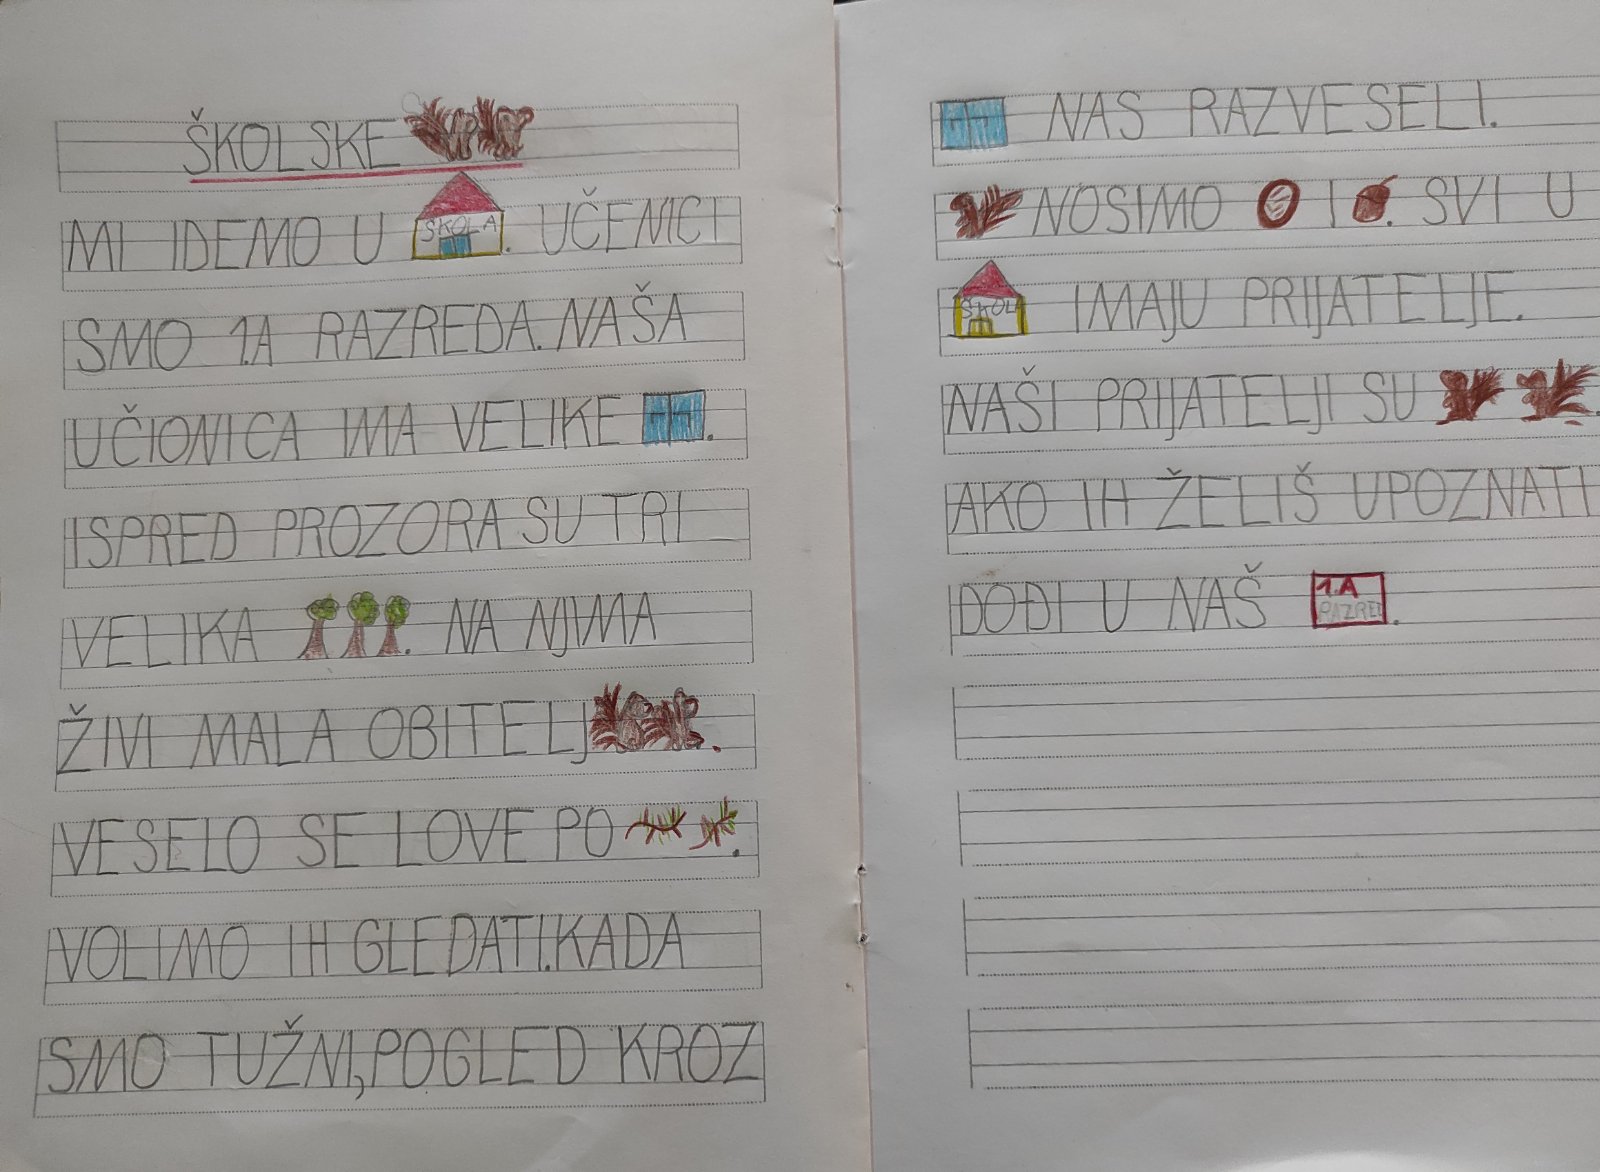 ŠKOLSKE
MI IDEMO U ŠKOLA. UČENICI
SMO 1.A RAZREDA. NAŠA
UČIONICA IMA VELIKE .
ISPRED PROZORA SU TRI
VELIKA . NA NJIMA
ŽIVI MALA OBITELJ .
VESELO SE LOVE PO .
VOLIMO IH GLEDATI. KADA
SMO TUŽNI, POGLED KROZ
NAS RAZVESELI.
NOSIMO I . SVI U
ŠKOL IMAJU PRIJATELJE.
NAŠI PRIJATELJI SU .
AKO IH ŽELIŠ UPOZNATI
DOĐI U NAŠ 1.A RAZRED.